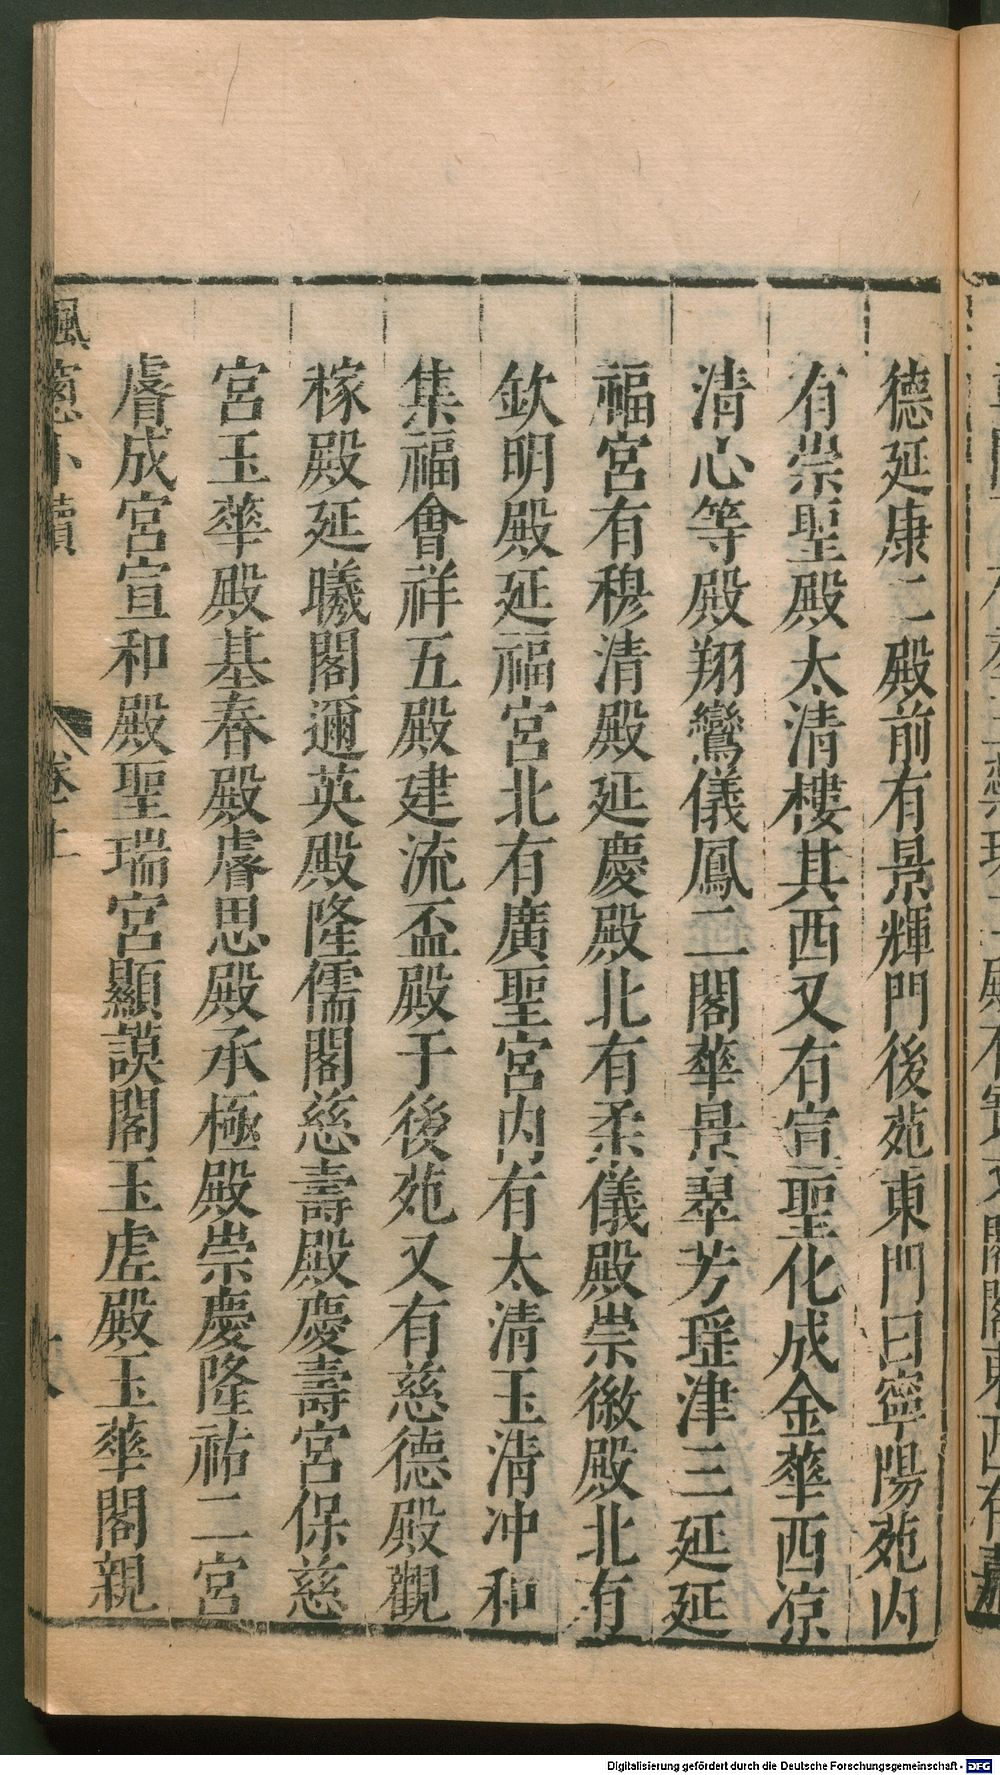 德延康二殿前有景輝門後苑東門曰寧陽苑内
有崇聖殿太清樓其西又有宣聖化成金華西凉
清心等殿翔鸞儀鳳二閣華景翠芳瑶津三延延
福宮有穆清殿延慶殿北有柔儀殿崇徽殿北有
欽明殿延福宮北有廣聖宮内有太清玉清冲和
集福會祥五殿建流盃殿于後苑又有慈德殿觀
稼殿延曦閣邇英殿隆儒閣慈壽殿慶壽宮保慈
宮玉華殿基春殿睿思殿承極殿崇慶隆祐二宮
睿成宮宣和殿聖瑞宮顯謨閣玉虛殿玉華閣親
楓窻小牘
卷上
Digitalisierung gefördert durch die Deutsche Forschungsgemeinschaft - DFG